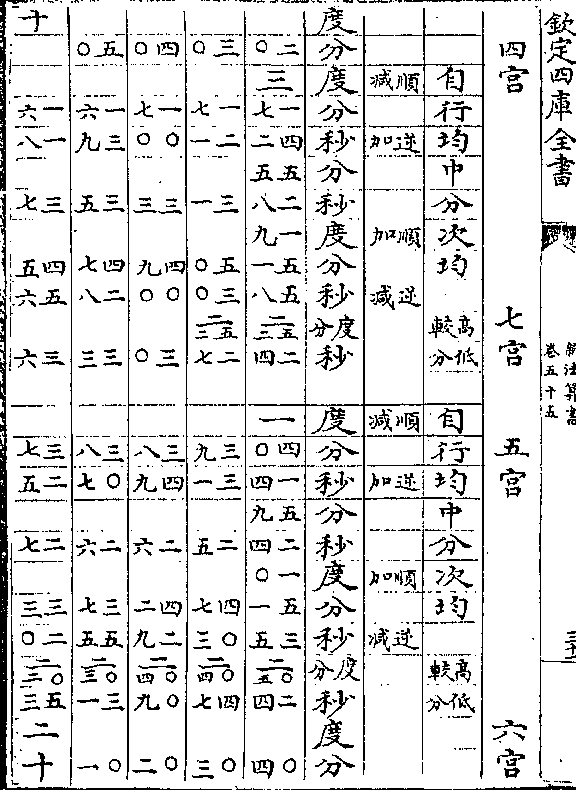 欽定四庫全書 新法算書 卷五十五
四宮 七宮 五宮 六宮
自行均 中分 次均 高低較分 自行均 中分 次均 高低較分
順減 逆加 順加 逆減 順減 逆加 順加 逆減
度 分 度 分 秒 分 秒 度 分 秒 度分 秒 度 分 秒 分 秒 度 分 秒 度分 秒 度 分
二〇 三 一七 四二 五五 二八 一九 五一 五八 二五三 二四 一 四〇 一四 五九 二四 一〇 五一 三五 二〇五 二四 〇四
三〇 一七 二一 三一 五〇 三〇 二五三 二七 三九 三一 二五 四七 〇三 二〇四 四七 〇三
四〇 一七 〇〇 三三 四九 〇〇 三〇 三八 四九 二六 四二 二九 二〇四 〇九 〇二
五〇 一六 三九 三五 四七 二八 三三 三八 〇七 二六 三七 五五 二〇三 三一 〇一
十 一六 一八 三七 四五 五六 三六 三七 二五 二七 三三 二〇 二〇三 五三 二 十